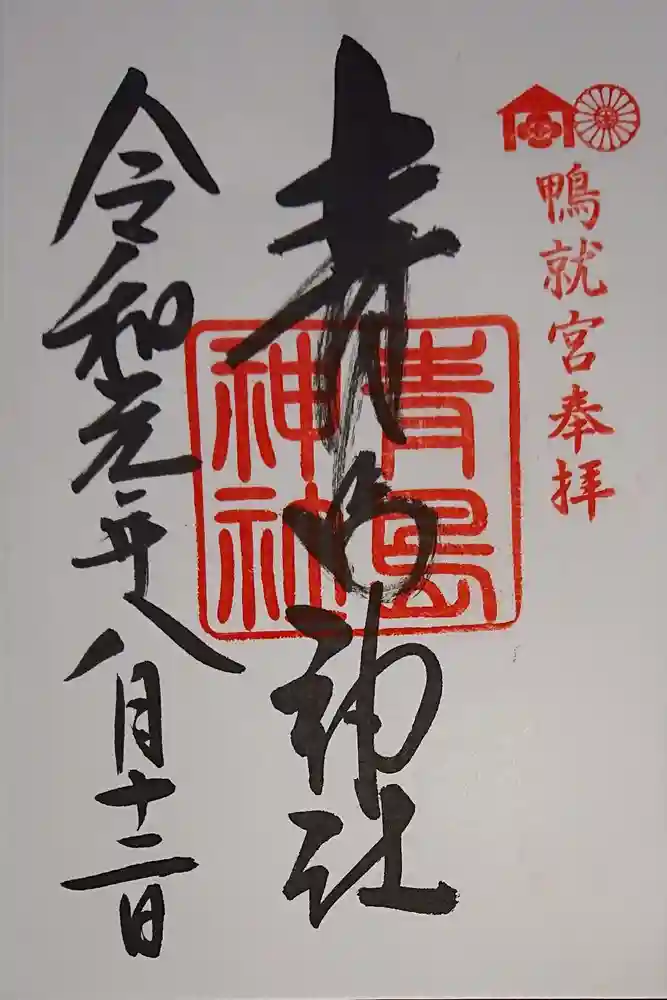 鴨就宮奉拝
青島神社
青島
神社
令和元年八月十二日